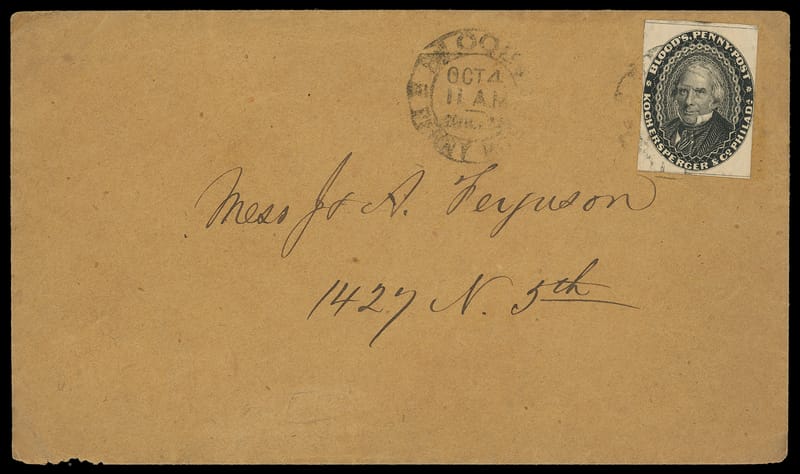 OCT 4
11 AM
BLOOD'S. PENNY. POST
KOCHERSPERGER & Co. PHILADA.
Mess J & A. Ferguson
1427 N. 5th